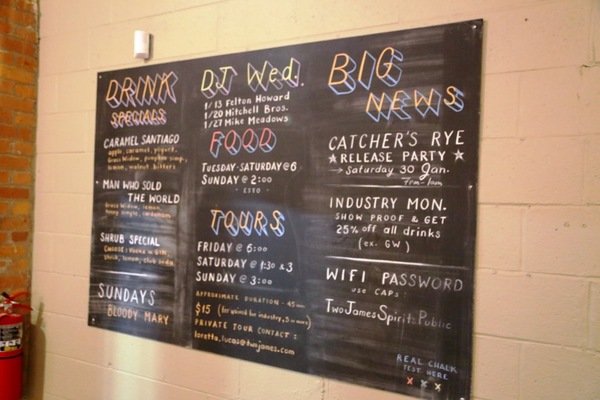 DRINK
SPECIALS
CARAMEL SANTIAGO
apple, caramel, yogurt,
Grass Widow, pumpkin simp,
lemon, walnut bitters
MAN WHO SOLD
THE WORLD
Grass Widow, lemon,
honey simple, cardamom
SHRUB SPECIAL
CHOOSE: Vodka or GIN,
shrub, lemon, club soda
SUNDAYS
BLOODY MARY
DJ Wed.
1/13 Felton Howard
1/20 Mitchell Bros.
1/27 Mike Meadows
FOOD
TUESDAY-SATURDAY @ 6
SUNDAY @ 2:00
TOURS
FRIDAY @ 6:00
SATURDAY @ 1:30 & 3
SUNDAY @ 3:00
APPROXIMATE DURATION - 45
$15 (for waived for industry, 5 or more)
PRIVATE TOUR CONTACT:
loretta.lucas@twojames.com
BIG
NEWS
CATCHER'S RYE
★ RELEASE PARTY ★
→ Saturday 30 Jan.
7pm-1am
INDUSTRY MON.
SHOW PROOF & GET
25% off all drinks
(ex. GW)
WIFI PASSWORD
USE CAPS:
TwoJamesSpiritsPublic
REAL CHALK
TEST HERE
x x x